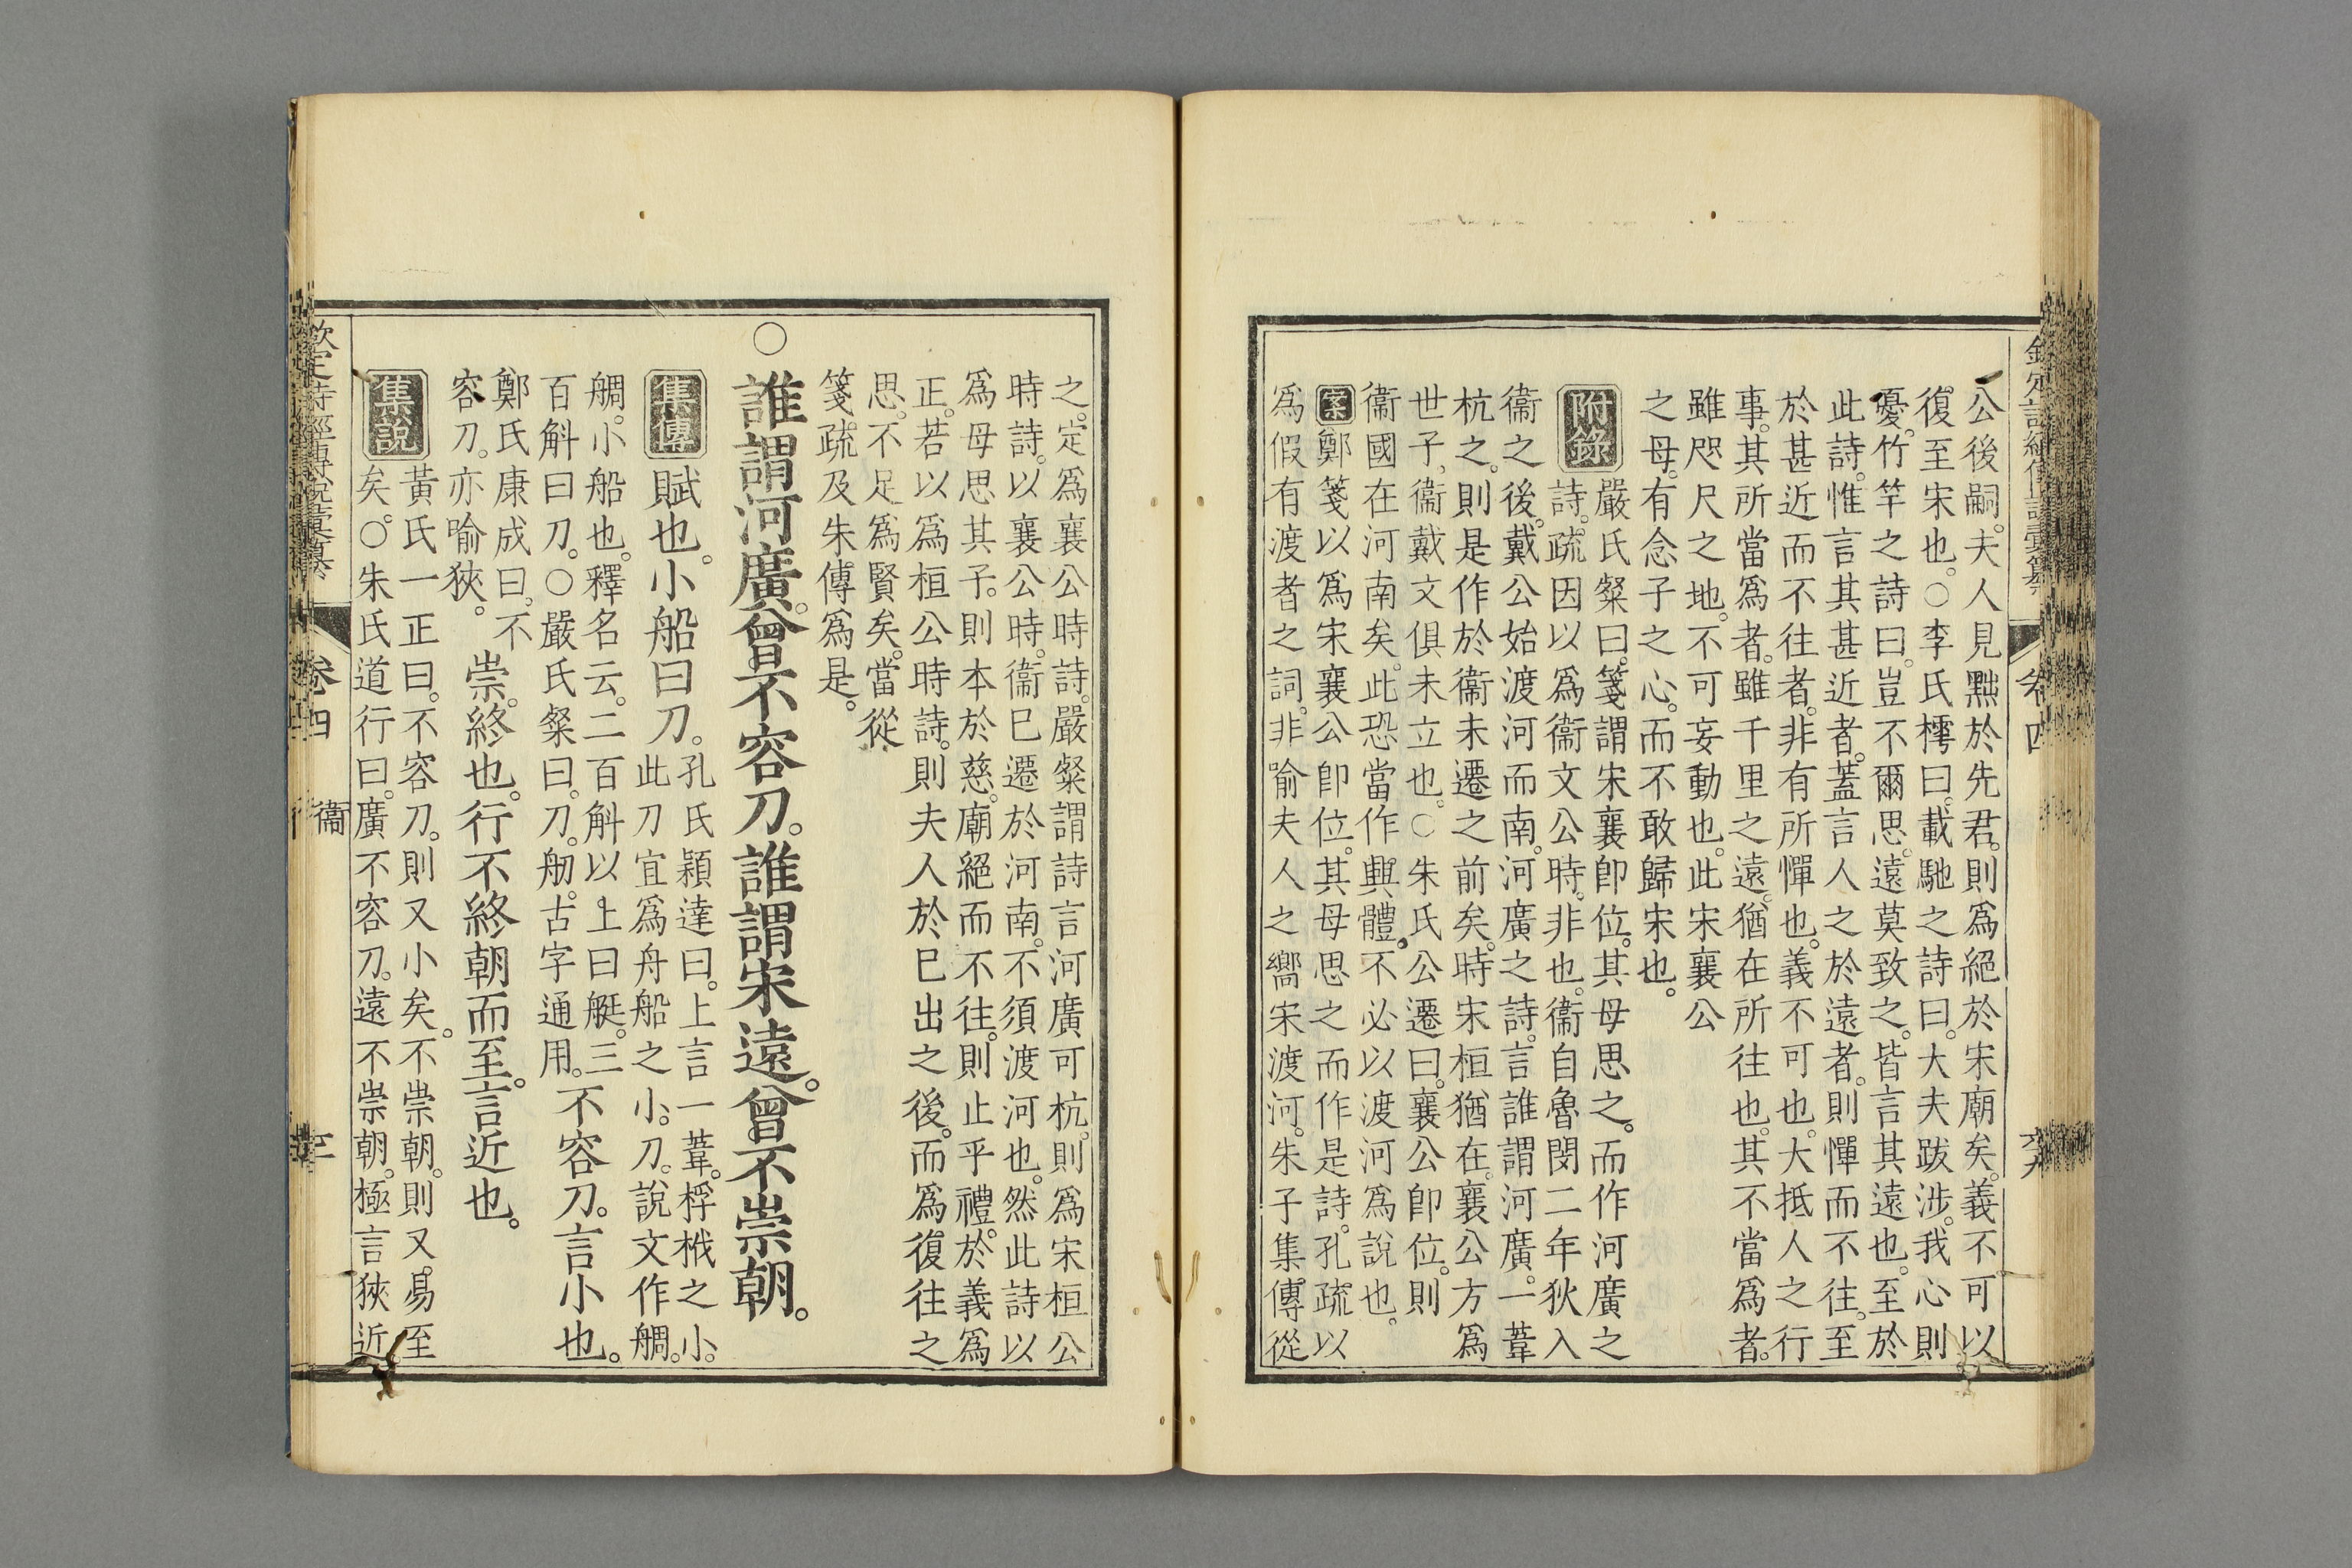 公後嗣。夫人見黜於先君。則爲絕於宋廟矣。義不可以
復至宋也。○李氏樗曰。載馳之詩曰。大夫跋涉。我心則
憂。竹竿之詩曰。豈不爾思。遠莫致之。皆言其遠也。至於
此詩。惟言其甚近者。蓋言人之於遠者。則憚而不往。至
於甚近而不往者。非有所憚也。義不可也。大抵人之行
事。其所當爲者。雖千里之遠。猶在所往也。其不當爲者。
雖咫尺之地。不可妄動也。此宋襄公
之母。有念子之心。而不敢歸宋也。
附錄
嚴氏粲曰。箋謂宋襄卽位。其母思之。而作河廣之
詩。疏因以爲衞文公時。非也。衞自魯閔二年狄入
衞之後。戴公始渡河而南。河廣之詩。言誰謂河廣。一葦
杭之。則是作於衞未遷之前矣。時宋桓猶在。襄公方爲
世子。衞戴文俱未立也。○朱氏公遷曰。襄公卽位。則
衞國在河南矣。此恐當作興體。不必以渡河爲說也。
案鄭箋以爲宋襄公卽位。其母思之而作是詩。孔疏以
爲假有渡者之詞。非喻夫人之嚮宋渡河。朱子集傳從
之。定爲襄公時詩。嚴粲謂詩言河廣可杭。則爲宋桓公
時詩。以襄公時。衞已遷於河南。不須渡河也。然此詩以
爲母思其子。則本於慈。廟絕而不往。則止乎禮。於義爲
正。若以爲桓公時詩。則夫人於已出之後。而爲復往之
思。不足爲賢矣。當從
箋疏及朱傳爲是。
○誰謂河廣。曾不容刀。誰謂宋遠。曾不崇朝。
集傳
賦也。小船曰刀。孔氏穎達曰。上言一葦。桴栰之小。
此刀宜爲舟船之小。刀。說文作舠。
舠。小船也。釋名云。二百斛以上曰艇。三
百斛曰刀。○嚴氏粲曰。刀。舠。古字通用。不容刀。言小也。
鄭氏康成曰。不
容刀。亦喻狹。崇。終也。行不終朝而至。言近也。
集說
黃氏一正曰。不容刀。則又小矣。不崇朝。則又易至
矣。○朱氏道行曰。廣不容刀。遠不崇朝。極言狹近。
欽定詩經傳說彙纂
卷四
衞